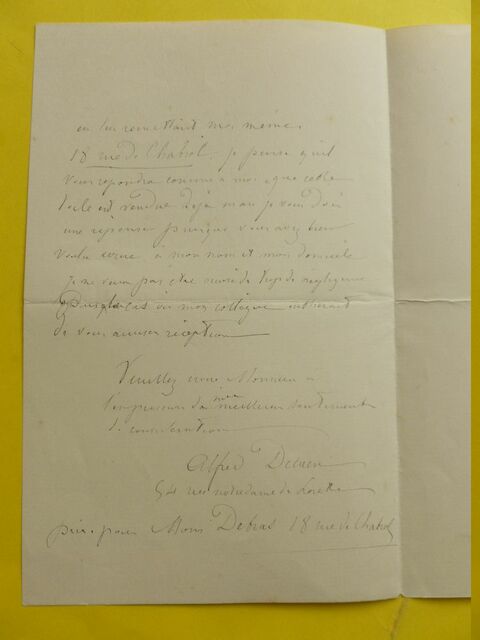 en lui remettant moi même
18 rue de Chabrol, je pense qu'il
vous repondra comme à moi que cette
toile est vendue déjà mais je vous dois
une réponse puisque vous avez bien
voulu à mon nom et mon domicile
je ne veux pas être de trop de négligence
dans le cas ou mon collègue oublierait
de vous accuser réception
Veuillez croire Monsieur à
l'expression de mes meilleurs sentiments
de consideration
Alfred
54 rue notre dame de Lorette
pour Mons Debras 18 rue de Chabrol